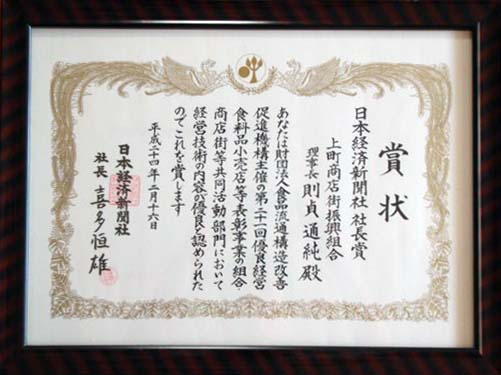 賞状
日本経済新聞社 社長賞
上町商店街振興組合
理事長 則貞 通純 殿
あなたは財団法人食品流通構造改善
促進機構主催の第二十一回優良経営
食料品小売店等表彰事業の組合
商店街等共同活動部門において
経営技術の内容の優良を認められた
のでこれを賞します
平成二十四年二月十六日
日本経済新聞社
社長 喜多恒雄